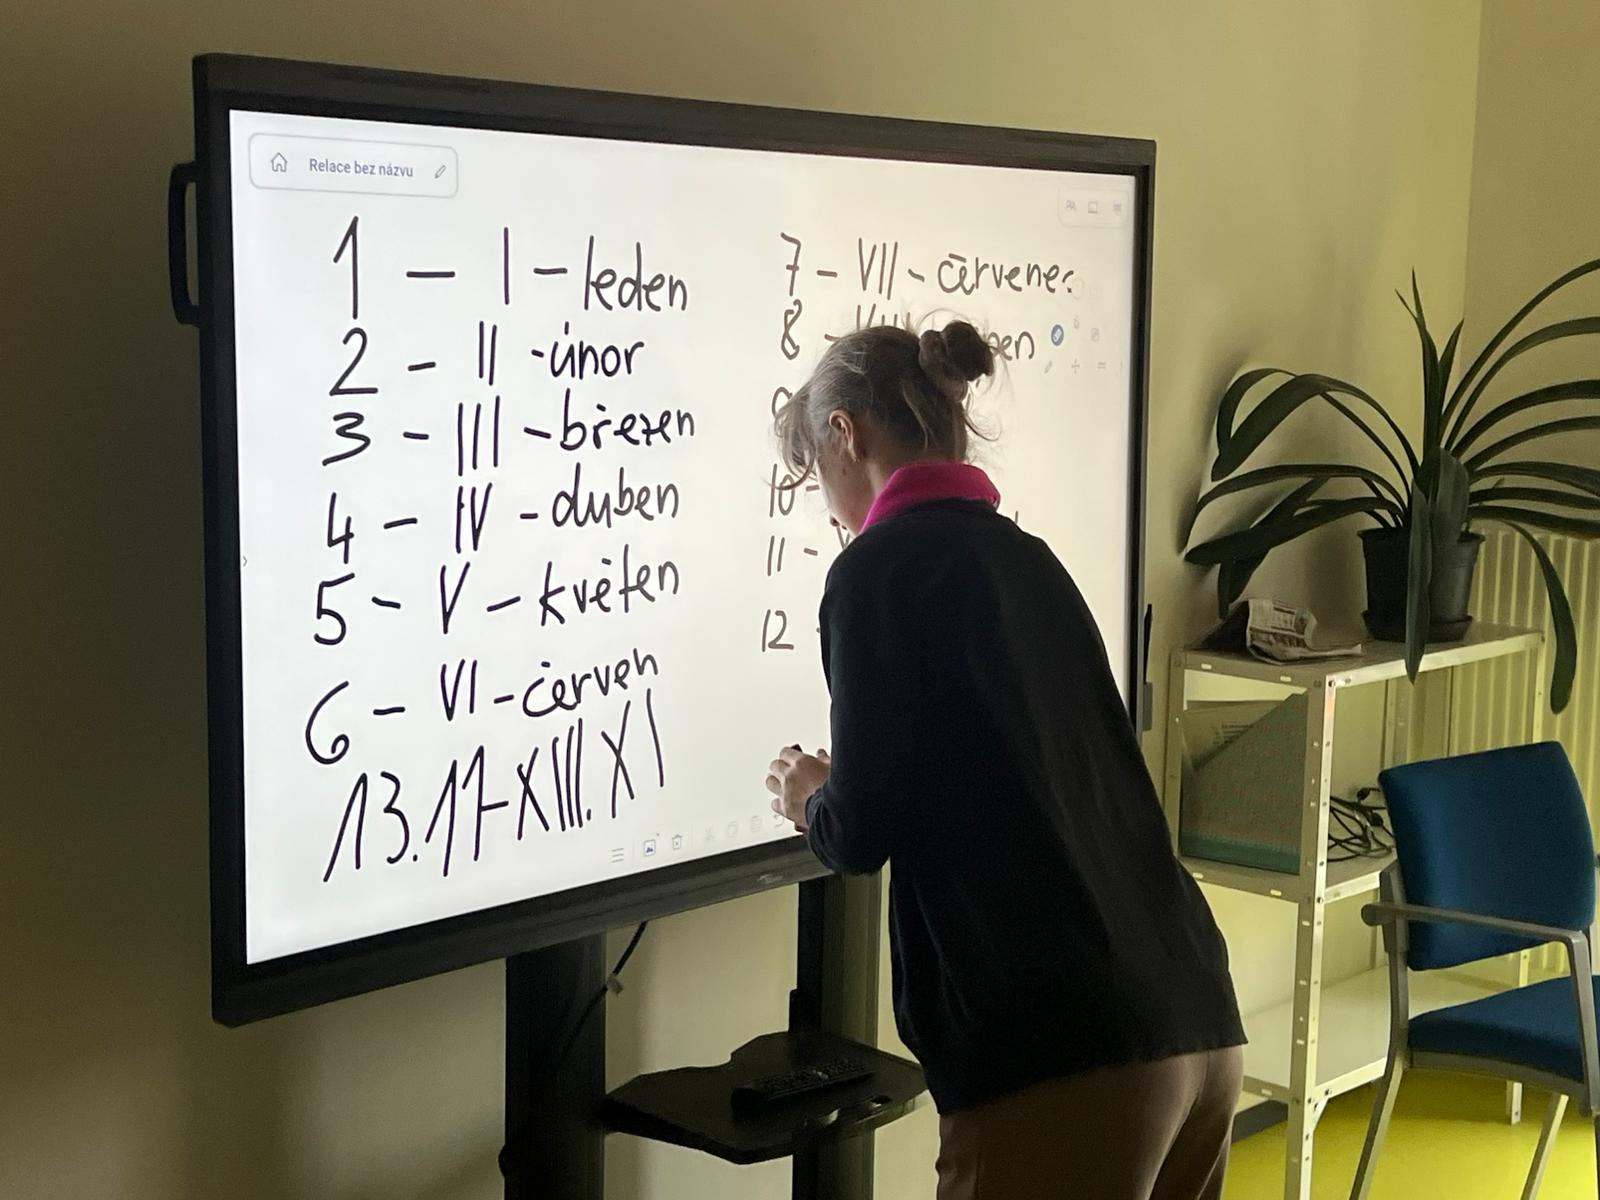 Relace bez názvu
1 – I – leden
2 – II - únor
3 – III – březen
4 – IV – duben
5 – V – květen
6 – VI – červen
13. 17 - XIII. XI
7 – VII – červenec
8 –
10 -
11 -
12